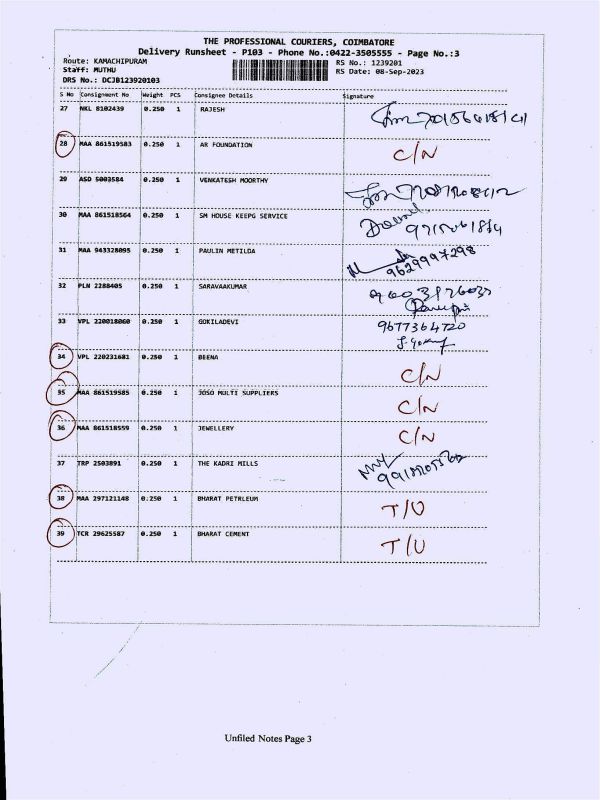 THE PROFESSIONAL COURIERS, COIMBATORE
Delivery Runsheet - P103 - Phone No.:0422-3505555 - Page No.:3
Route: KAMACHIPURAM RS No.: 1239201
Staff: MUTHU RS Date: 08-Sep-2023
DRS No.: DCJB123920103
S No Consignment No Weight PCS Consignee Details Signature
27 NKL 8102439 0.250 1 RAJESH
28 MAA 861519583 0.250 1 AR FOUNDATION C/N
29 ASD 5003584 0.250 1 VENKATESH MOORTHY
30 MAA 861518564 0.250 1 SM HOUSE KEEPG SERVICE
31 MAA 943328095 0.250 1 PAULIN METILDA 9629997298
32 PLN 2288405 0.250 1 SARAVAAKUMAR
33 VPL 220018060 0.250 1 GOKILADEVI 9677364720
34 VPL 220231681 0.250 1 BEENA C/N
35 MAA 861519585 0.250 1 JOSO MULTI SUPPLIERS C/N
36 MAA 861518559 0.250 1 JEWELLERY C/N
37 TRP 2503891 0.250 1 THE KADRI MILLS
38 MAA 297121148 0.250 1 BHARAT PETRLEUM T/U
39 TCR 29625587 0.250 1 BHARAT CEMENT T/U
Unfiled Notes Page 3